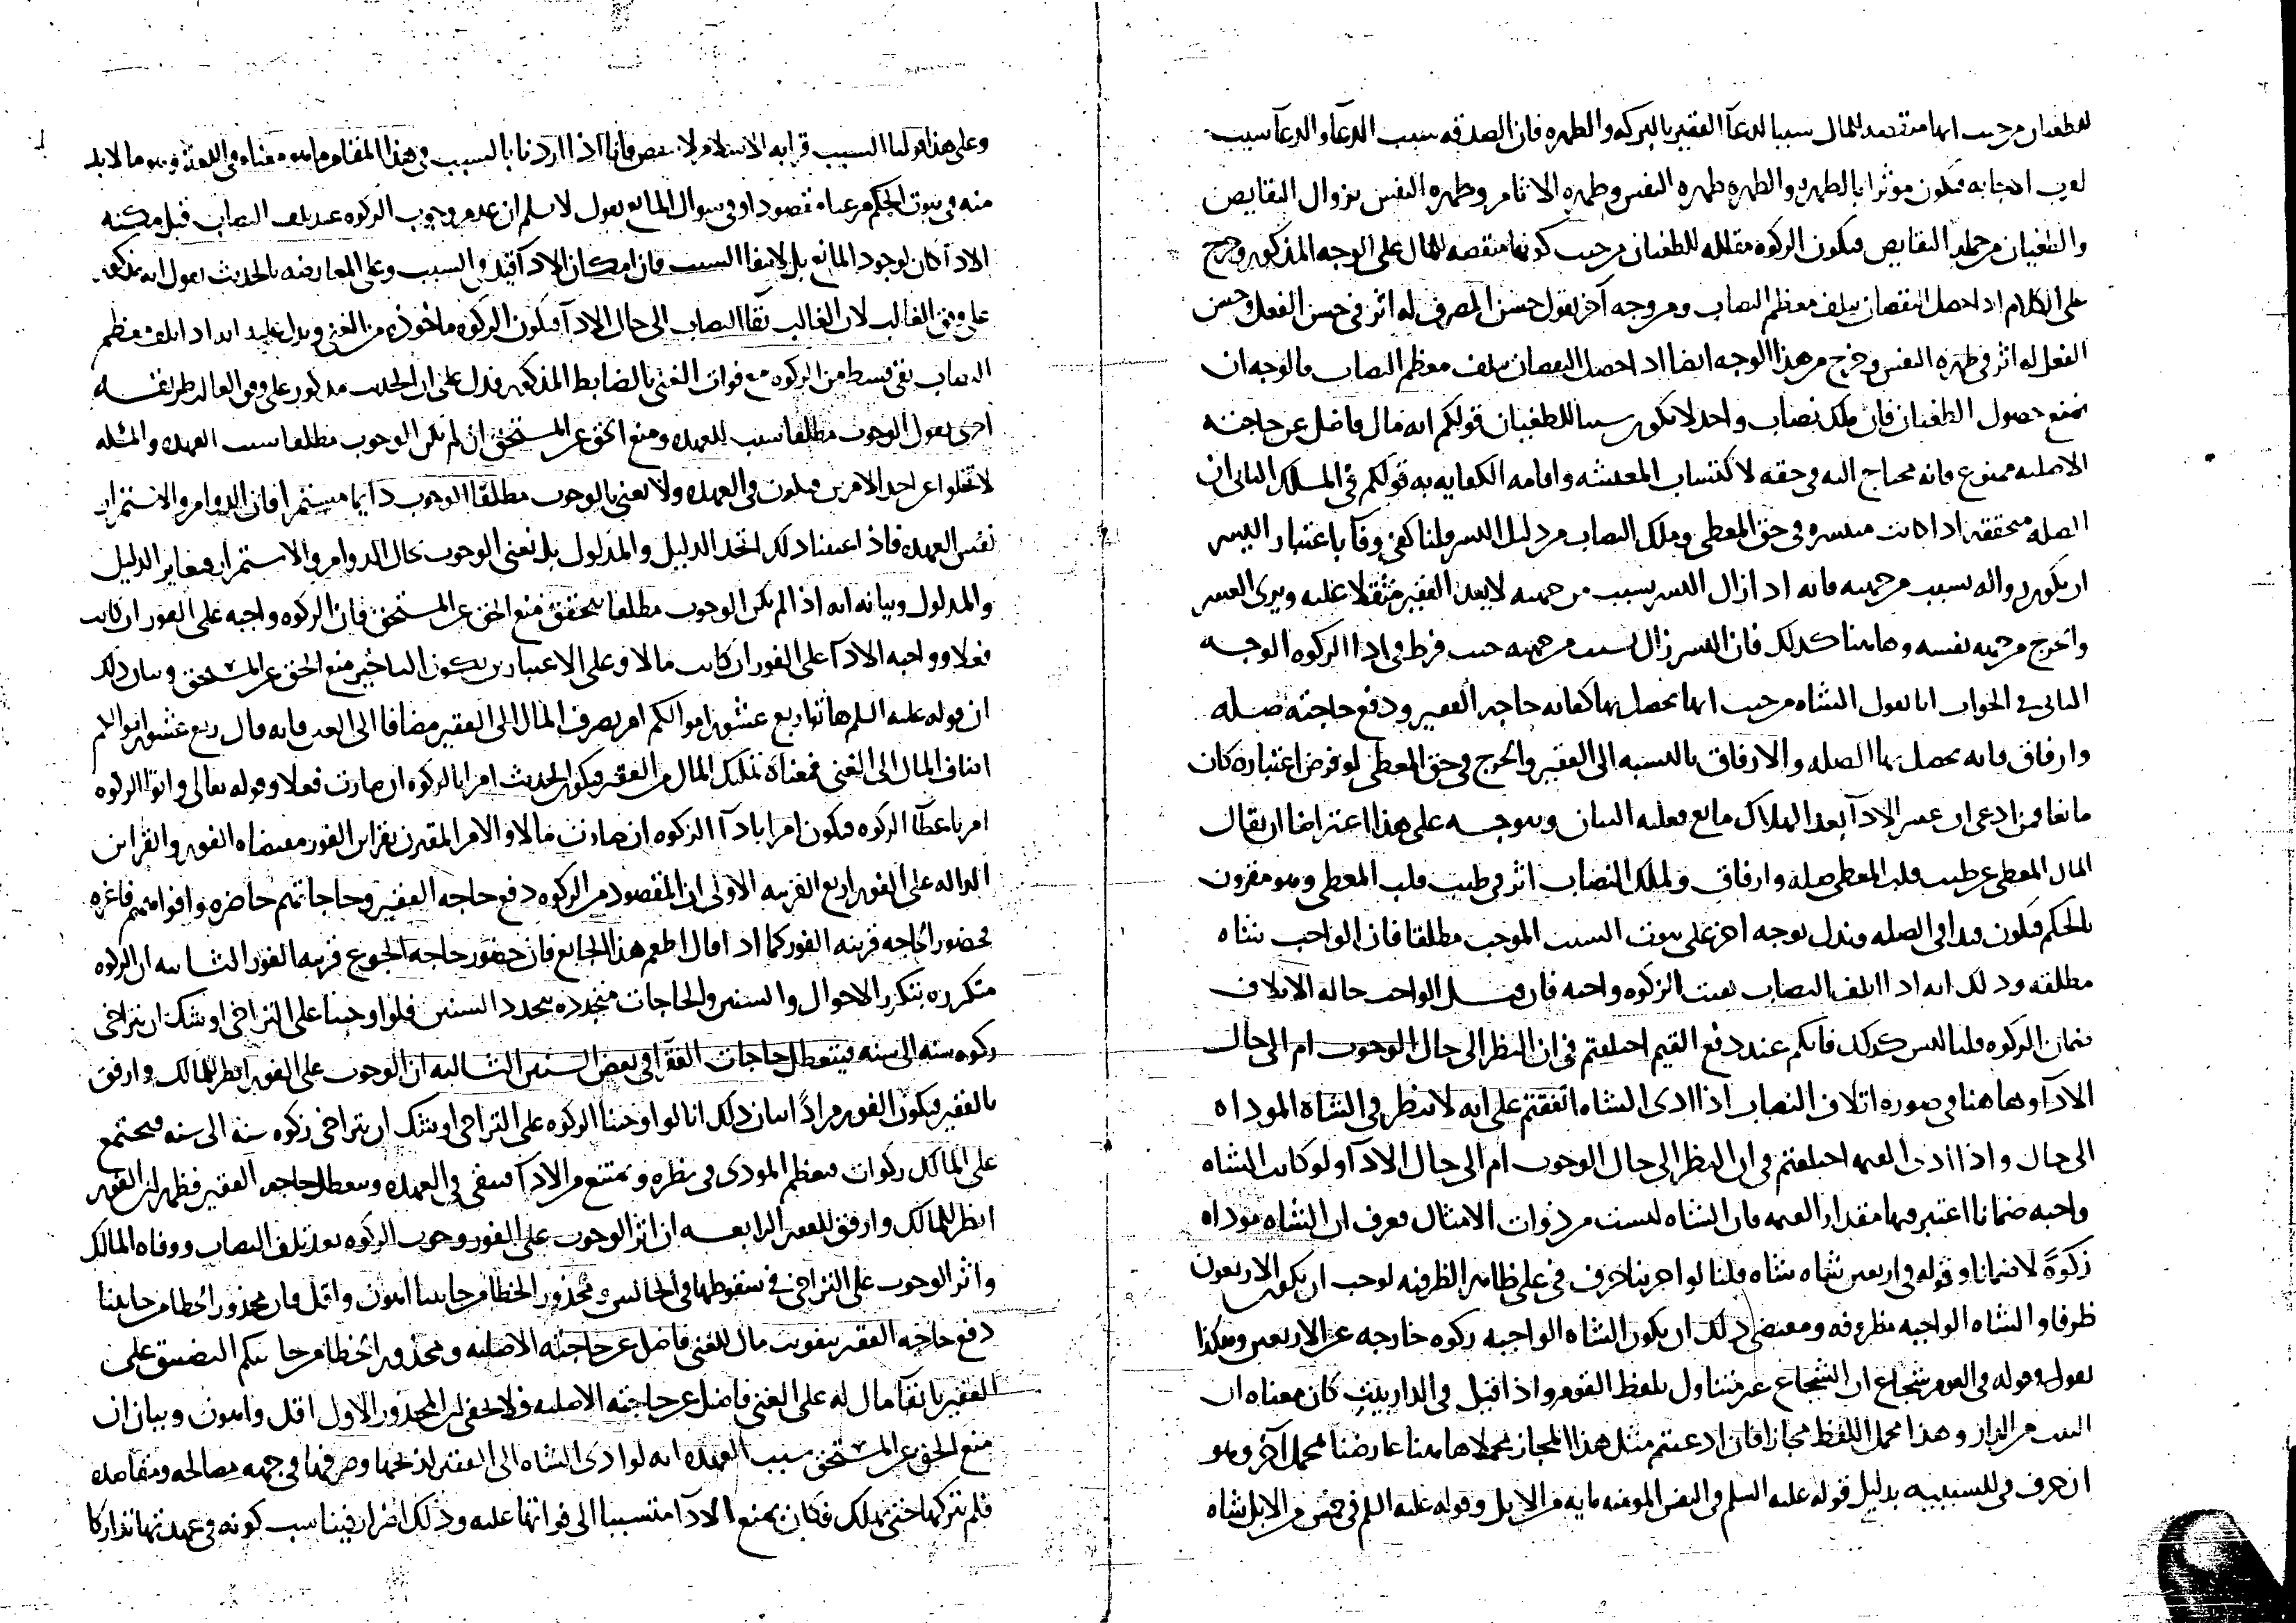 للطغيان من حيث انها منقصه للمال سببا لدعا الفقير بالبركه والطهره فان الصدقه سبب الدعا والدعا سبب
لقرب اجابه فيكون موثرا بالطهره والطهره طهره النفس وطهره الاثام وطهره النفس بزوال النقايص
والطغيان من جمله النقايص فيكون الزكوه مقلله للطغيان من حيث كونها منقصه للمال على الوجه المذكور وخرج
على الكلام اذا حصل النقصان بتلف معظم النصاب ومن وجه آخر نقول حسن المصرف له اثر في حسن الفعل وحسن
الفعل له اثر في طهره النفس وخرج من هذا الوجه ايضا اذا حصل النقصان بتلف معظم النصاب فالوجه ان
نمنع حصول الطغيان فان ملك نصاب واحد لا يكون سببا للطغيان قولكم انه مال فاضل عن حاجته
الاصليه ممنوع فانه محتاج اليه في حقه لاكتساب المعيشه واقامه الكفايه به قولكم في المسلك الثاني ان
الصله متحققه اذا كانت متيسره في حق المعطي وملك النصاب من دليل اليسر قلنا كفى وفا باعتبار اليسر
ان يكون زواله بسبب من جهته فانه اذا زال اليسر بسبب من جهته لا يعد الفقير مثقلا عليه ويرى العسر
والحرج من جهه نفسه وهاهنا كذلك فان اليسر زال بسبب من جهته حيث فرط في ادا الزكوه الوجه
الثاني في الجواب انا نقول الشاه من حيث انها يحصل بها كفايه حاجه الفقير ودفع حاجته صله
وارفاق فانه يحصل بها الصله والارفاق بالنسبه الى الفقير والحرج في حق المعطي لو فرض اعتباره كان
مانعا فمن ادعى ان عسر الادا بعد الهلاك مانع فعليه البيان ويتوجه على هذا اعتراضا ان يقال
المال المعطى عن طيب قلب المعطي صله وارفاق ولملك النصاب اثر في طيب قلب المعطي وهو مقرون
بالحكم فيكون قيدا في الصله ويدل بوجه اخر على ثبوت السبب الموجب مطلقا فان الواجب شاه
مطلقه وذلك انه اذا اتلف النصاب بقيت الزكوه واجبه فان قيل الواجب حاله الاتلاف
ضمان الزكوه قلنا ليس كذلك فانكم عند دفع القيم اختلفتم في ان النظر الى حال الوجوب ام الى حال
الادا وهاهنا في صوره اتلاف النصاب اذا ادى الشاه اتفقتم على انه لا ينظر في الشاه الموداه
الى حال واذا ادى القيمه اختلفتم في ان النظر الى حال الوجوب ام الى حال الادا ولو كانت الشاه
واجبه ضمانا اعتبر فيها مقدار القيمه فان الشاه ليست من ذوات الامثال فعرف ان الشاه موداه
زكوةً لا ضمانا وقوله في اربعين شاه شاه قلنا لو اجرينا حرف في على ظاهر الظرفيه لوجب ان يكون الاربعون
ظرفا والشاه الواجبه مظروفه ومقتضى ذلك ان يكون الشاه الواجبه زكوه خارجه عن الاربعين وهكذا
نقول وقوله في القوم شجاع ان الشجاع غير متناول بلفظ القوم واذا قيل في الدار بيت كان معناه ان
البيت من الدار وهذا محمل اللفظ مجازا فان ادعيتم مثل هذا المجاز محملا هاهنا عارضنا بمحمل آخر وهو
ان حرف في للسببيه بدليل قوله عليه السلم في النفس المومنه مايه من الابل وقوله عليه السلم في خمس من الابل شاه
وعلى هذا قولنا السبب قرابه الاسلام لا ينتقض فانا اذا اردنا بالسبب في هذا المقام ما هو معناه في اللغه وهو ما لا بد
منه في ثبوت الحكم مقصودا وفي سوال المانع نقول لا نسلم ان عدم وجوب الزكوه عند تلف النصاب قبل مكنه
الادا كان لوجود المانع بل لانتفا السبب فان امكان الادا قيد في السبب وعلى المعارضه بالحديث نقول انه مذكور
على وفق الغالب لان الغالب بقا النصاب الى حال الادا فيكون الزكوه ماخوذه من الغني ويدل عليه انه اذا تلف معظم
النصاب بقي قسط من الزكوه مع فوات الغنى بالضابط المذكور فدل على ان الحديث مذكور على وفق الغالب طريقه
اخرى نقول الوجوب مطلقا سبب للعهده ومنع الحق عن المستحق ان لم يكن الوجوب مطلقا سبب العهده والمسله
لا تخلوا عن احد الامرين فيكون في العهده ولا نعني بالوجوب مطلقا الوجوب دايما مستمرا فان الدوام والاستمرار
نفس العهده فاذا عنينا ذلك اتحد الدليل والمدلول بل نعني الوجوب بحال الدوام والاستمرار فيغاير الدليل
والمدلول وبيانه انه اذا لم يكن الوجوب مطلقا يتحقق منع الحق عن المستحق فان الزكوه واجبه على الفور ان كانت
فعلا وواجبه الادا على الفور ان كانت مالا وعلى الاعتبارين يكون التاخير منع الحق عن المستحق وبيان ذلك
ان قوله عليه السلم هاتوا ربع عشور اموالكم امر بصرف المال الى الفقير مضافا الى الغني فانه قال ربع عشور اموالكم
اضاف المال الى الغني فمعناه تمليك المال من الفقير فيكون الحديث امرا بالزكوه ان صارت فعلا وقوله تعالى واتوا الزكوه
امر باعطا الزكوه فيكون امرا بادا الزكوه ان صارت مالا والامر المقترن بقراين الفور مقتضاه الفور والقراين
الداله على الفور اربع القرينه الاولى ان المقصود من الزكوه دفع حاجه الفقير وحاجاتهم حاضره وافواههم فاغره
فحضور الحاجه قرينه الفور كما اذا قال اطعم هذا الجايع فان حضور حاجه الجوع قرينه الفور الثانيه ان الزكوه
متكرره بتكرر الاحوال والسنين والحاجات متجدده بتجدد السنين فلو اوجبنا على التراخي اوشك ان يتراخى
زكوه سنه الى سنه فيتعطل حاجات الفقرا في بعض السنين الثالثه ان الوجوب على الفور انظر للمالك وارفق
بالفقير فيكون الفور مرادا بيان ذلك انا لو اوجبنا الزكوه على التراخي اوشك ان يتراخى زكوه سنه الى سنه فيجتمع
على المالك زكوات فيعظم المودى في نظره ويمتنع من الادا فيبقى في العهده ويتعطل حاجه الفقير فظهر ان الفور
انظر للمالك وارفق للفقير الرابعه ان اثر الوجوب على الفور وجوب الزكوه بعد تلف النصاب ووفاه المالك
واثر الوجوب على التراخي في سقوطها في الحالتين ومحذور الخطا من جانبنا اهون واقل فان محذور الخطا من جانبنا
دفع حاجه الفقير بتفويت مال للغني فاضل عن حاجته الاصليه ومحذور الخطا من جانبكم التضييق على
الفقير بابقا مال له على الغني فاضل عن حاجته الاصليه ولا خفى ان المحذور الاول اقل واهون وبيان ان
منع الحق عن المستحق سبب العهده انه لو ادى الشاه الى الفقير لذبحها وصرفها في جهه مصالحه ومقاصده
فلم تتركها حتى تهلك فكان بمنع الادا متسببا الى فواتها عليه وذلك اضرار فيناسب كونه في عهدتها تداركا